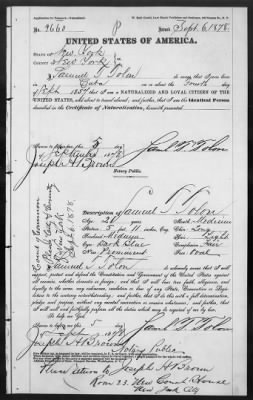 No. 9660 Issued Sept. 6, 1878.
UNITED STATES OF AMERICA.
STATE OF New York
COUNTY OF New York
I, Samuel T. Tolon do swear, that I was born
in Cuba on or about the fourth day
of Sept 1857 that I am a NATURALIZED AND LOYAL CITIZEN OF THE
UNITED STATES, and about to travel abroad; and further, that I am the identical Person
described in the Certificate of Naturalization, herewith presented.
Sworn to before me this 5 day
of September 1878
Joseph H Brown
Notary Public.
Saml T. Tolon
Court of Common
Pleas City & County
of New York
Sept 6 1878
Description of Samuel T. Tolon
Age: 21
Mouth: Medium
Stature: 5 feet 11 inches, Eng.
Chin: Long
Forehead: Medium
Hair: Light
Eyes: Dark Blue
Complexion: Fair
Nose: Prominent
Face: Oval
I, Samuel T. Tolon do solemnly swear that I will
support, protect and defend the Constitution and Government of the United States against
all enemies, whether domestic or foreign, and that I will bear true faith, allegiance, and
loyalty to the same, any ordinance, resolution or law of any State, Convention or Legislature
to the contrary notwithstanding; and further, that I do this with a full determination,
pledge and purpose, without any mental reservation or evasion whatsoever; and further,
that I will well and faithfully perform all the duties which may be required of me by law.
So help me God.
Sworn to before me this 5 day
of Sept 1878
Saml T. Tolon
Joseph H Brown
Notary Public
Please return to Joseph H Brown
Room 23. New Court House
New York City